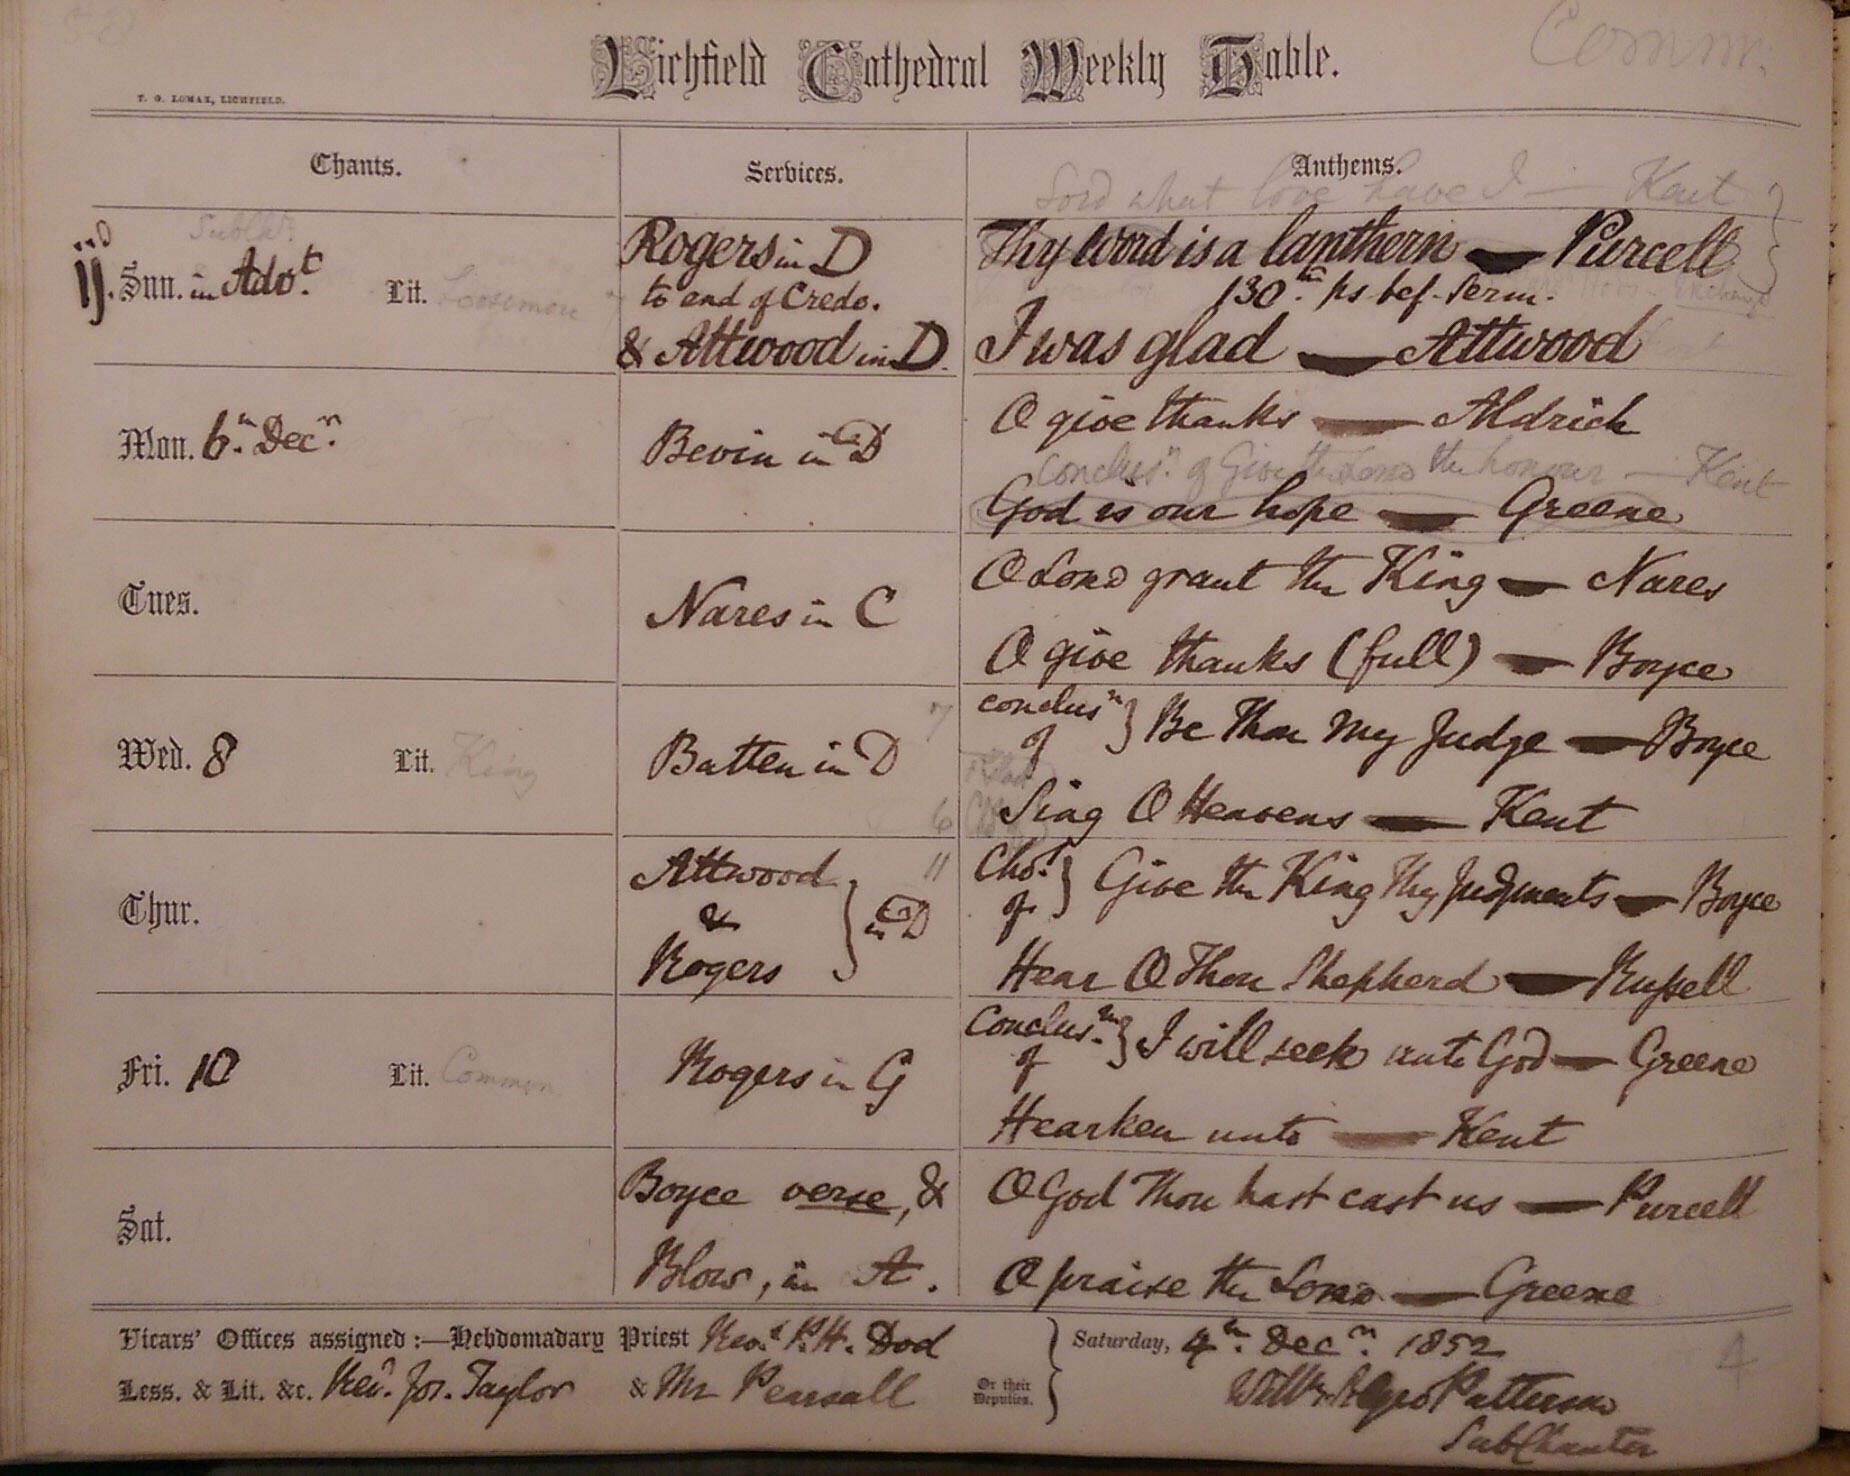 Comm.
Lichfield Cathedral Weekly Table.
T. G. LOMAX, LICHFIELD.
Chants. Services. Anthems.
Lord what love have I — Kent
SubChr.
ij. Sun. in Advt. Lit. Loosemore
Rogers in D
to end of Credo.
& Attwood in D.
Thy Word is a lanthern — Purcell
130th. ps. bef. Serm.
I was glad — Attwood
Mon. 6th. Decr.
Bevin in D
O give thanks — Aldrich
Conclusn. of Give the Lord the honour — Kent
God is our hope — Greene
Tues.
Nares in C
O Lord grant the King — Nares
O give thanks (full) — Boyce
Wed. 8 Lit. King
Batten in D
7
6
conclusn of } Be Thou my Judge — Boyce
Sing O Heavens — Kent
Thur.
Attwood
&
Rogers } in D
11
Chos. of } Give the King Thy Judgments — Boyce
Hear O Thou Shepherd — Russell
Fri. 10 Lit. Common
Rogers in G
Conclusn. of } I will seek unto God — Greene
Hearken unto — Kent
Sat.
Boyce verse, &
Blow, in A.
O God Thou hast cast us — Purcell
O praise the Lord — Greene
Vicars' Offices assigned :—Hebdomadary Priest Revd. P.H. Dod
Less. & Lit. &c. Revd. Jos. Taylor & Mr Pearsall
Or their Deputies. }
Saturday, 4th. Decr. 1852
Patterson
SubChanter
4